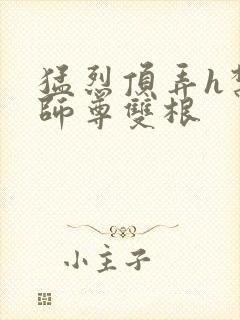 猛烈頂弄h
師尊雙根
小主子